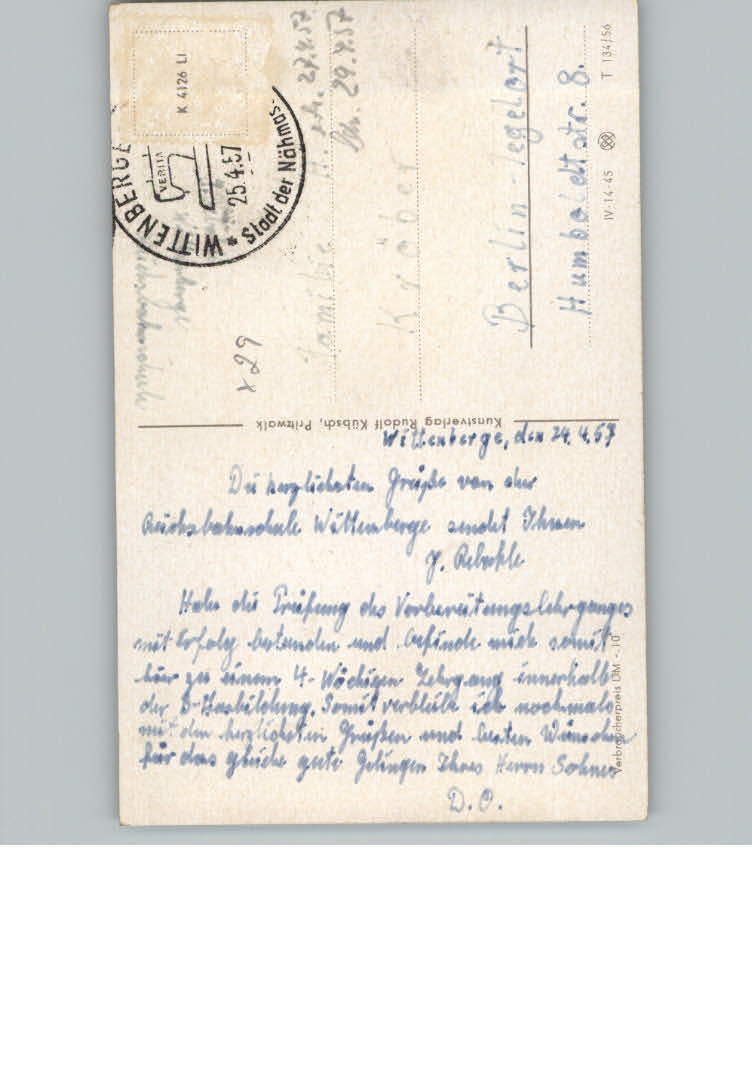 K 4126 LI
WITTENBERGE
VERITA
25.4.57
* Stadt der Nähmas
27.4.57
29.4.57
x 29
Familie
Kröber
Berlin-Tegelort
Humboldtstr. 8.
IV-14-45
T 134/56
Kunstverlag Rudolf Kübsch, Pritzwalk
Verbraucherpreis DM -.10
Wittenberge, den 24.4.57
Die herzlichsten Grüße von der
Reichsbahnschule Wittenberge sendet Ihnen
Habe die Prüfung des Vorbereitungslehrganges
mit Erfolg bestanden und befinde mich somit
hier zu einem 4-Wöchigen Lehrgang innerhalb
der B-Ausbildung. Somit verbleibe ich nochmals
mit den herzlichsten Grüßen und besten Wünschen
für das gleiche gute Gelingen Ihres Herrn Sohnes
D. O.